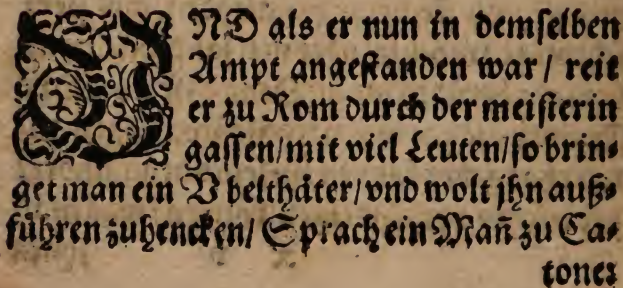 VND als er nun in demselben
Ampt angestanden war / reit
er zu Rom durch der meisterin
gassen/mit viel Leuten/so brin⸗
get man ein Vbelthäter/vnd wolt jhn auß⸗
führen zuhencken/ Sprach ein Mañ zu Ca⸗
tone: